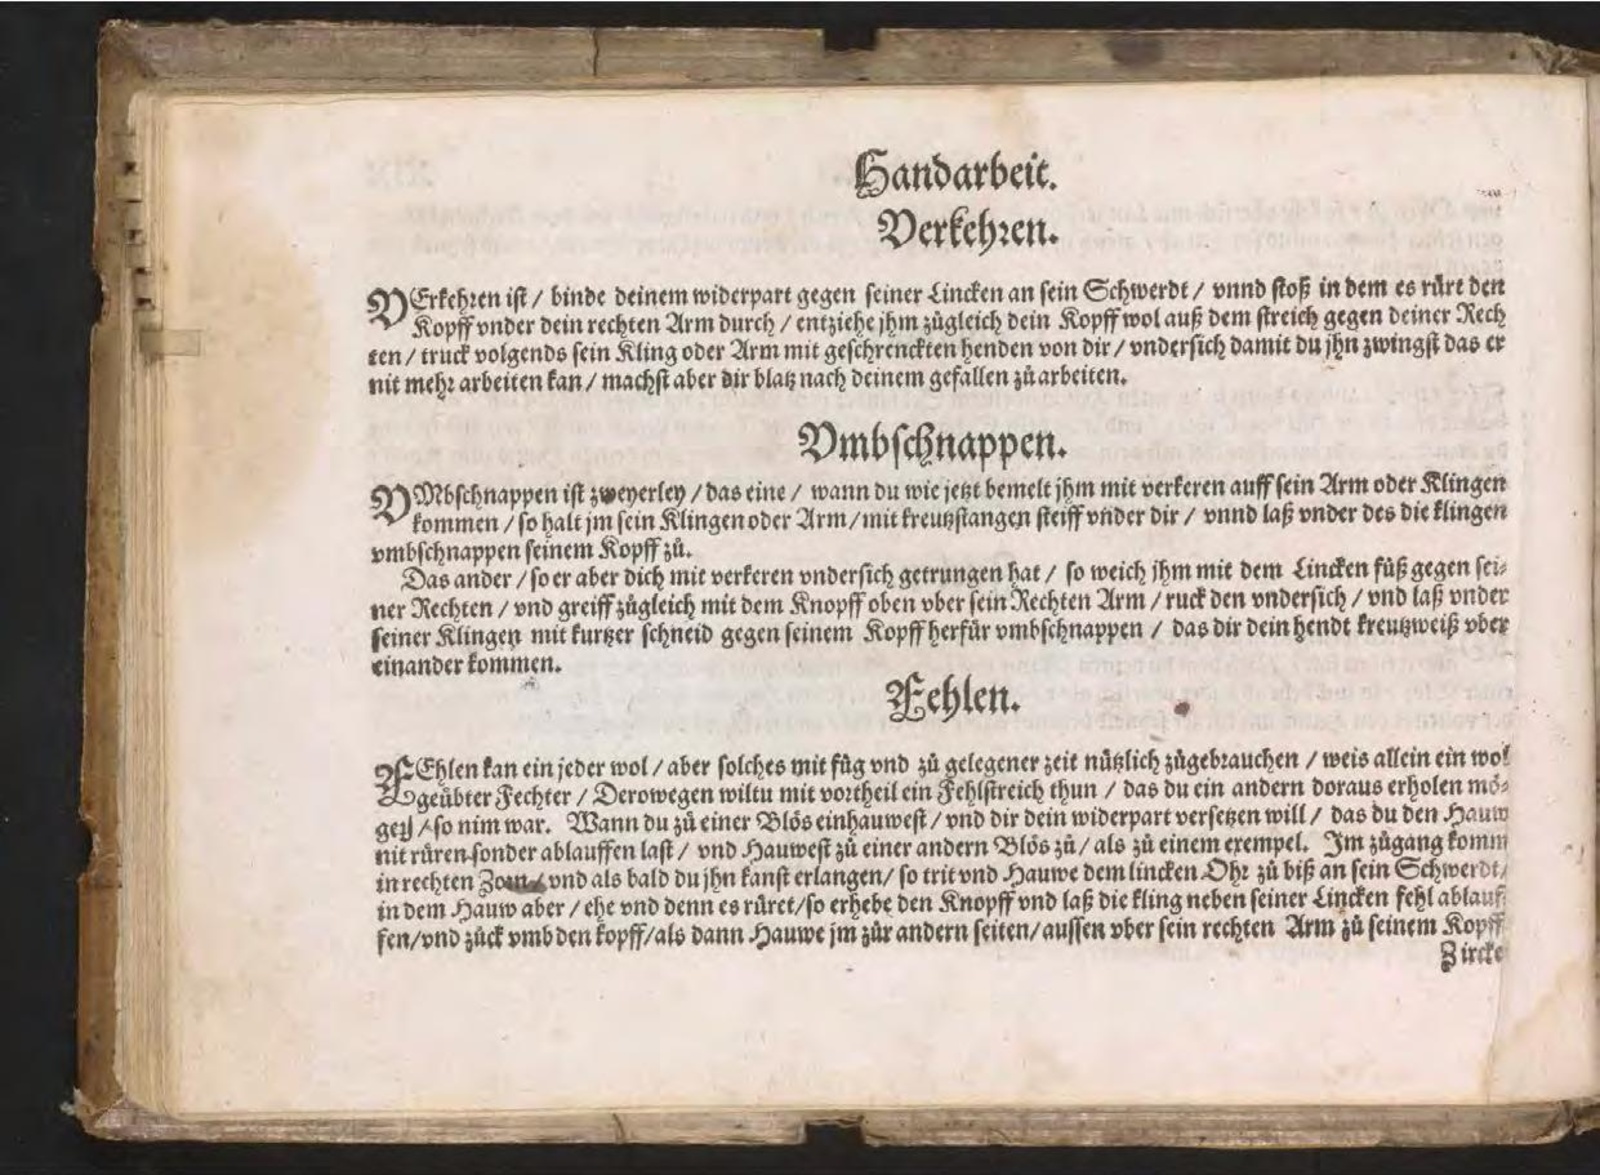 Handarbeit.
Verkehren.
VErkehren ist / binde deinem widerpart gegen seiner Lincken an sein Schwerdt / vnnd stoß in dem es rürt den
Kopff vnder dein rechten Arm durch / entziehe jhm zůgleich dein Kopff wol auß dem streich gegen deiner Rech
ten / truck volgends sein Kling oder Arm mit geschrenckten henden von dir / vndersich damit du jhn zwingst das er
nit mehr arbeiten kan / machst aber dir blatz nach deinem gefallen zů arbeiten.
Vmbschnappen.
VMbschnappen ist zweyerley / das eine / wann du wie jetzt bemelt jhm mit verkeren auff sein Arm oder Klingen
kommen / so halt jm sein Klingen oder Arm / mit kreutzstangen steiff vnder dir / vnnd laß vnder des die klingen
vmbschnappen seinem Kopff zů.
Das ander / so er aber dich mit verkeren vndersich getrungen hat / so weich jhm mit dem Lincken fůß gegen sei⸗
ner Rechten / vnd greiff zůgleich mit dem Knopff oben vber sein Rechten Arm / ruck den vndersich / vnd laß vnder
seiner Klingen mit kurtzer schneid gegen seinem Kopff herfür vmbschnappen / das dir dein hendt kreutzweiß vber
einander kommen.
Fehlen.
FEhlen kan ein jeder wol / aber solches mit fůg vnd zů gelegener zeit nützlich zůgebrauchen / weis allein ein wol
geübter Fechter / Derowegen wiltu mit vortheil ein Fehlstreich thun / das du ein andern doraus erholen mö⸗
gest / so nim war. Wann du zů einer Blös einhauwest / vnd dir dein widerpart versetzen will / das du den Hauw
nit rüren sonder ablauffen last / vnd Hauwest zů einer andern Blös zů / als zů einem exempel. Im zůgang komm
in rechten Zorn / vnd als bald du jhn kanst erlangen / so trit vnd Hauwe dem lincken Ohr zů biß an sein Schwerdt /
in dem Hauw aber / ehe vnd denn es rüret / so erhebe den Knopff vnd laß die kling neben seiner Lincken fehl ablauf⸗
fen / vnd zuck vmb den kopff / als dann Hauwe jm zůr andern seiten / aussen vber sein rechten Arm zů seinem Kopff
Zircke